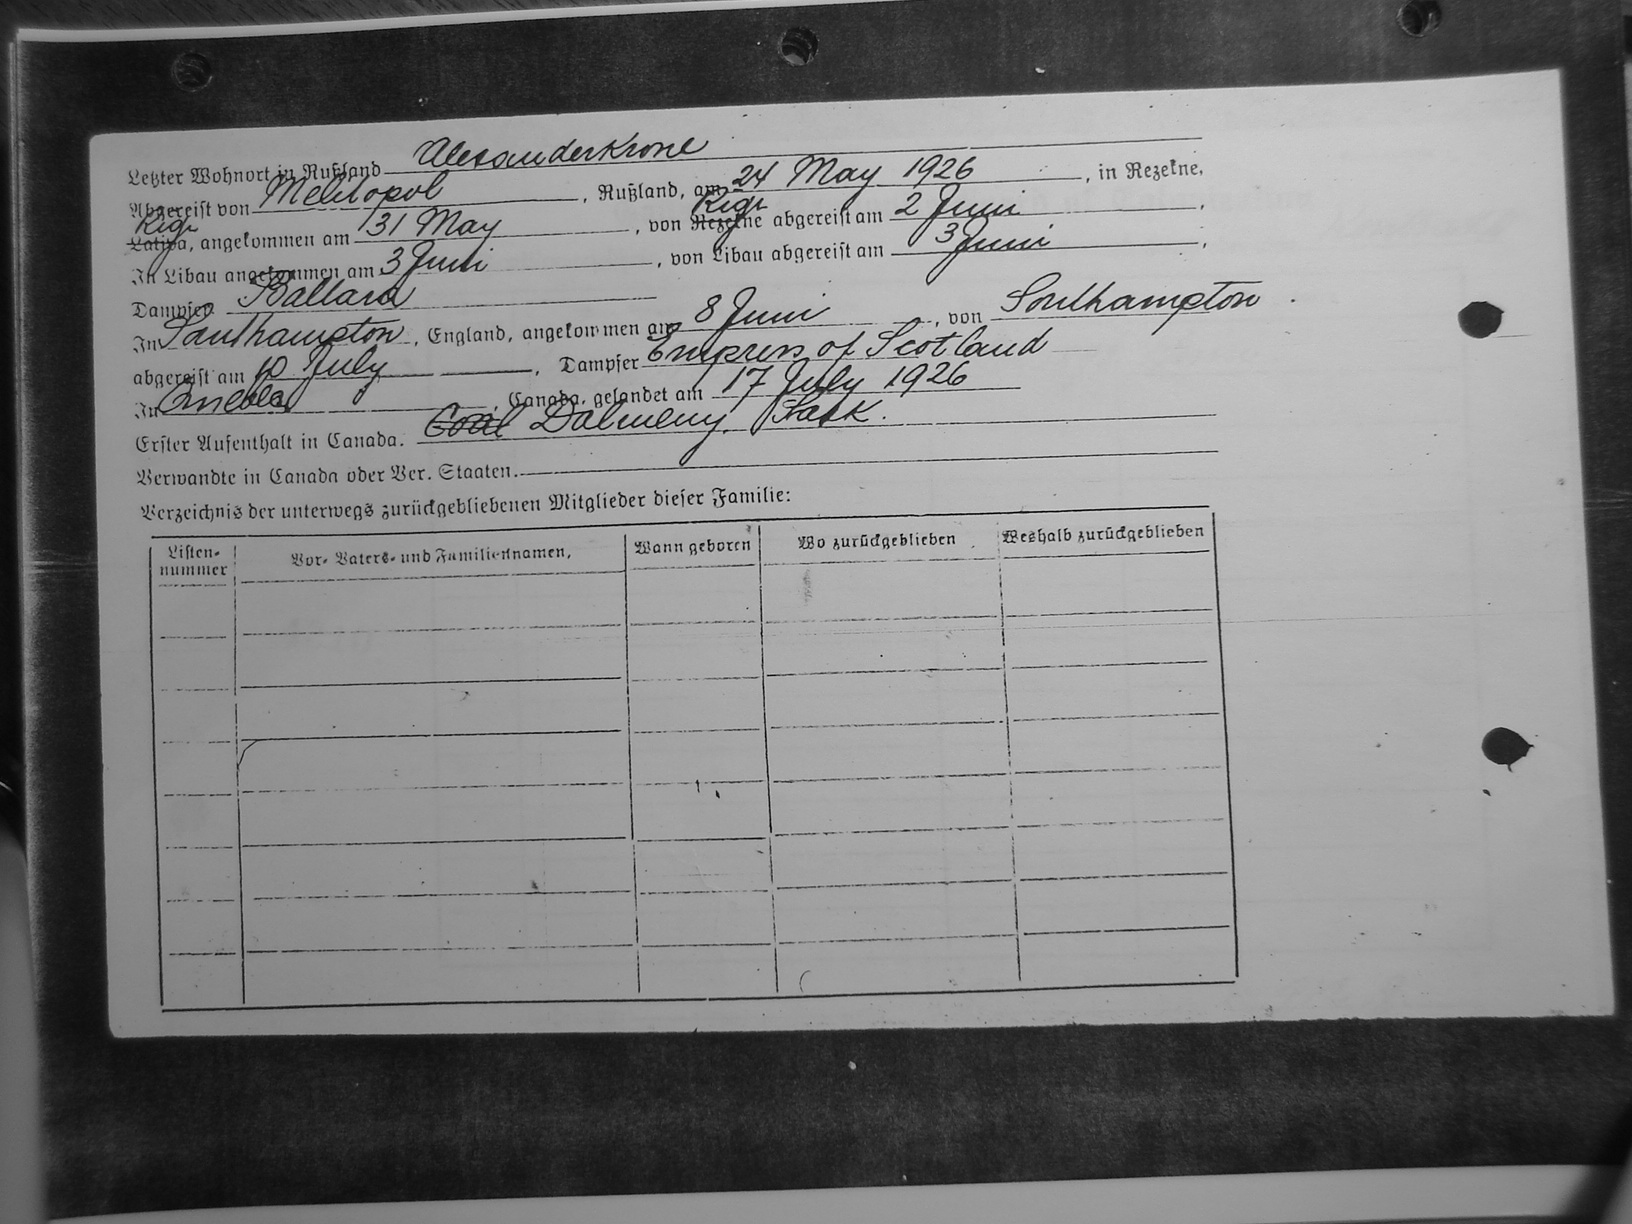 Letzter Wohnort in Rußland Alexanderkrone
Abgereist von Melitopol, Rußland, am 24 May 1926, in Rezekne,
Riga
Latvia, angekommen am 31 May, von Riga Rezekne abgereist am 2 Juni,
In Libau angekommen am 3 Juni, von Libau abgereist am 3 Juni,
Dampfer Baltara
In Southampton, England, angekommen am 8 Juni, von Southampton.
abgereist am 10 July, Dampfer Empress of Scotland
In Quebec, Canada, gelandet am 17 July 1926
Erster Aufenthalt in Canada. Dalmeny, Sask.
Verwandte in Canada oder Ver. Staaten.
Verzeichnis der unterwegs zurückgebliebenen Mitglieder dieser Familie:
Listen-nummer Vor- Vaters- und Familiennamen, Wann geboren Wo zurückgeblieben Weshalb zurückgeblieben